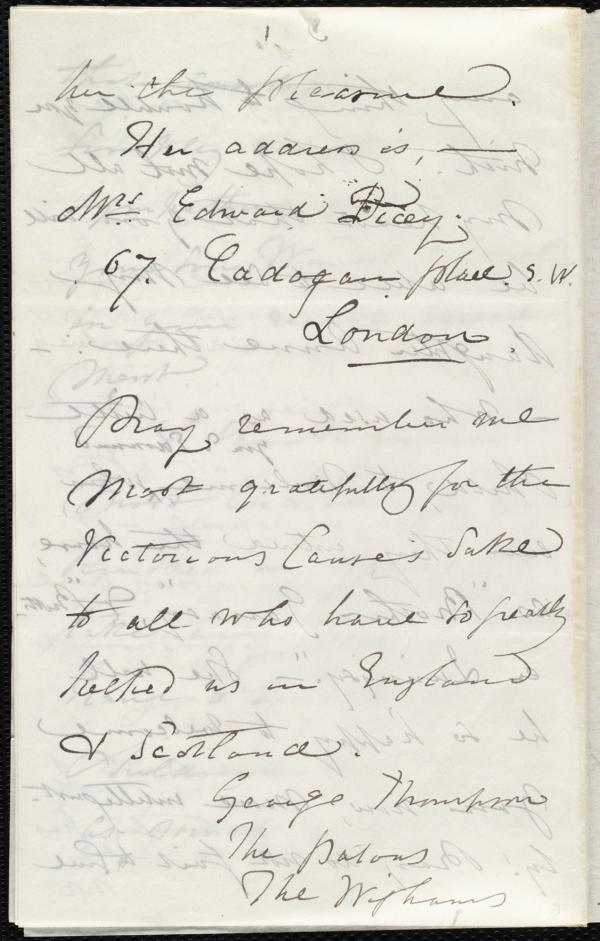 her the pleasure.
Her address is, —
Mrs Edward Dicey.
67. Cadogan place. S. W.
London.
Pray remember me
Most gratefully for the
Victorious Cause's Sake
to all who have so greatly
helped us in England
& Scotland.
George Thompson
The Patons
The Wighams